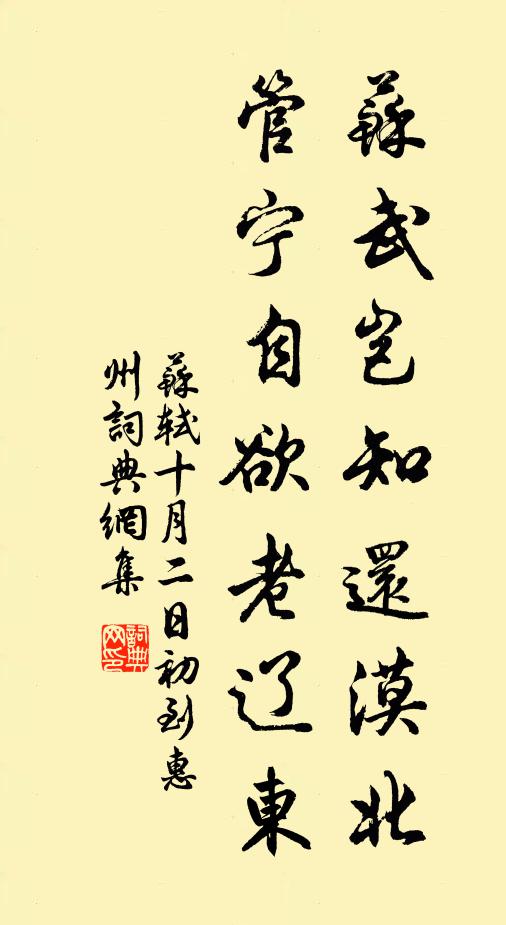 蘇武豈知還漠北
管宁自欲老辽東
蘇軾十月二日初到惠
州詞典網集
詞典網印